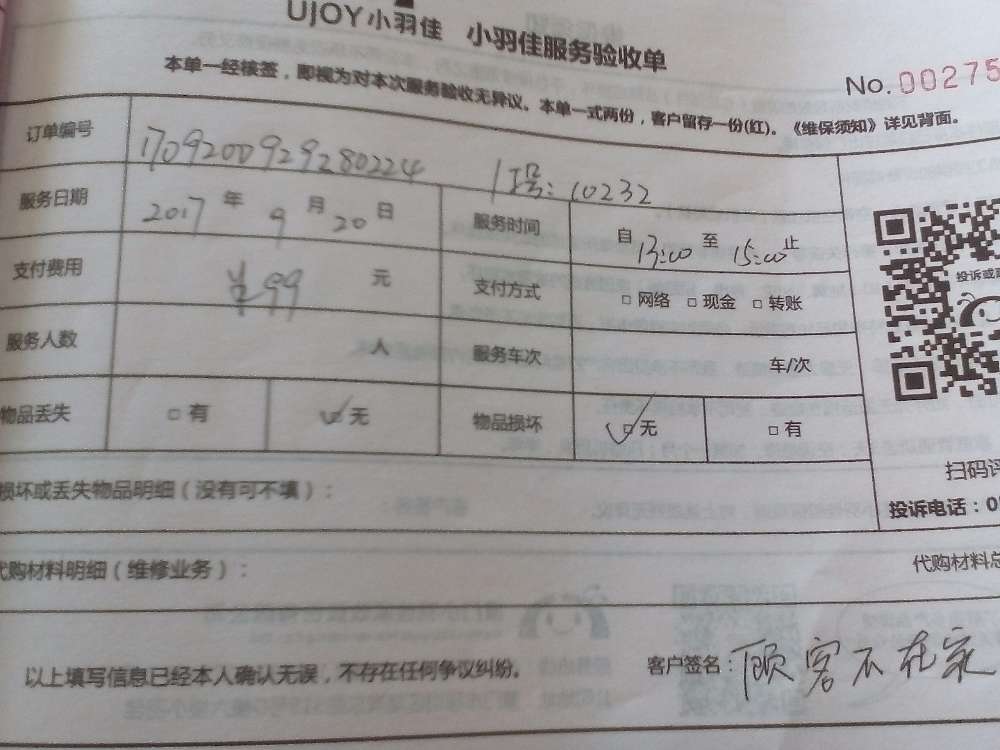 UJOY小羽佳 小羽佳服务验收单
No.00275
本单一经核签，即视为对本次服务验收无异议。本单一式两份，客户留存一份(红)。《维保须知》详见背面。
订单编号 1709200929280224 工号:10232
服务日期 2017年9月20日 服务时间 自13:00至15:00止
支付费用 ¥99元 支付方式 □网络 □现金 □转账
服务人数 人 服务车次 车/次
物品丢失 □有 ☑无 物品损坏 ☑无 □有
投诉或
扫码评
投诉电话：0
损坏或丢失物品明细（没有可不填）：
代购材料明细（维修业务）： 代购材料总
以上填写信息已经本人确认无误，不存在任何争议纠纷。 客户签名：顾客不在家